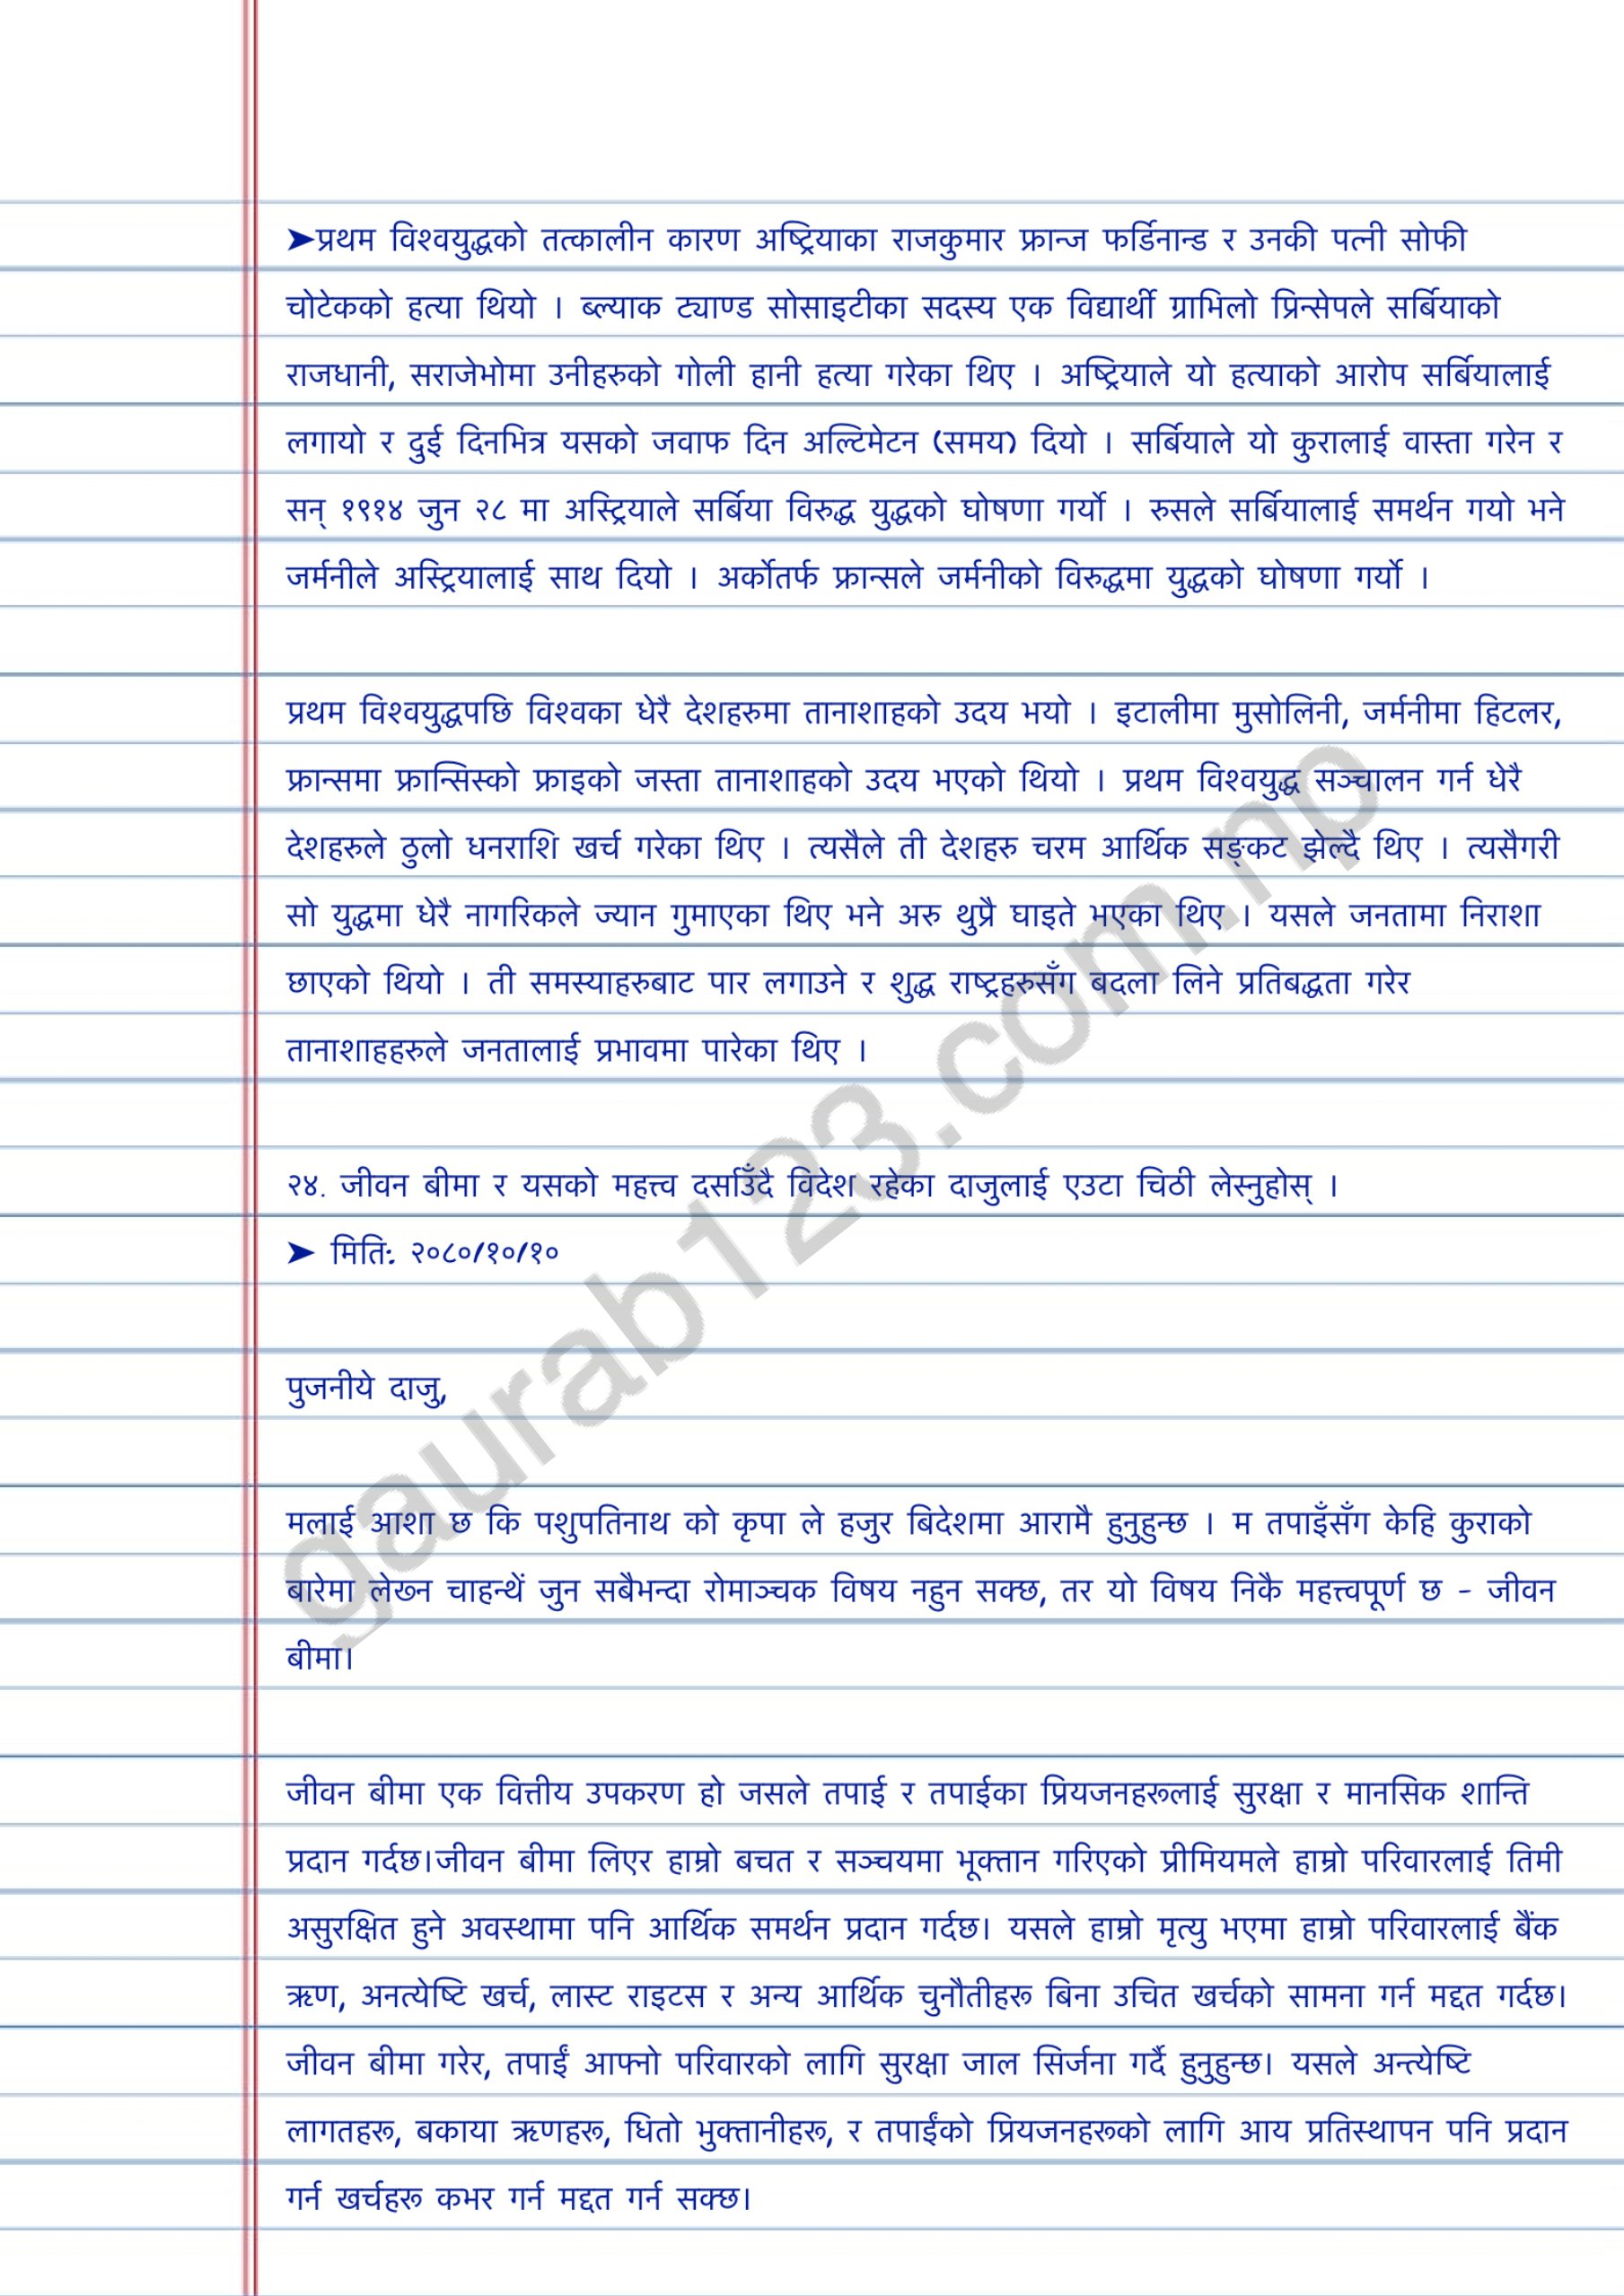 ➤प्रथम विश्वयुद्धको तत्कालीन कारण अष्ट्रियाका राजकुमार फ्रान्ज फर्डिनान्ड र उनकी पत्नी सोफी
चोटेकको हत्या थियो । ब्ल्याक ट्याण्ड सोसाइटीका सदस्य एक विद्यार्थी ग्राभिलो प्रिन्सेपले सर्बियाको
राजधानी, सराजेभोमा उनीहरुको गोली हानी हत्या गरेका थिए । अष्ट्रियाले यो हत्याको आरोप सर्बियालाई
लगायो र दुई दिनभित्र यसको जवाफ दिन अल्टिमेटन (समय) दियो । सर्बियाले यो कुरालाई वास्ता गरेन र
सन् १९१४ जुन २८ मा अस्ट्रियाले सर्बिया विरुद्ध युद्धको घोषणा गर्यो । रुसले सर्बियालाई समर्थन गयो भने
जर्मनीले अस्ट्रियालाई साथ दियो । अर्कोतर्फ फ्रान्सले जर्मनीको विरुद्धमा युद्धको घोषणा गर्यो ।
प्रथम विश्वयुद्धपछि विश्वका धेरै देशहरुमा तानाशाहको उदय भयो । इटालीमा मुसोलिनी, जर्मनीमा हिटलर,
फ्रान्समा फ्रान्सिस्को फ्राइको जस्ता तानाशाहको उदय भएको थियो । प्रथम विश्वयुद्ध सञ्चालन गर्न धेरै
देशहरुले ठुलो धनराशि खर्च गरेका थिए । त्यसैले ती देशहरु चरम आर्थिक सङ्कट झेल्दै थिए । त्यसैगरी
सो युद्धमा धेरै नागरिकले ज्यान गुमाएका थिए भने अरु थुप्रै घाइते भएका थिए । यसले जनतामा निराशा
छाएको थियो । ती समस्याहरुबाट पार लगाउने र शुद्ध राष्ट्रहरुसँग बदला लिने प्रतिबद्धता गरेर
तानाशाहहरुले जनतालाई प्रभावमा पारेका थिए ।
२४. जीवन बीमा र यसको महत्त्व दर्साउँदै विदेश रहेका दाजुलाई एउटा चिठी लेस्नुहोस् ।
➤ मिति: २०८०/१०/१०
पुजनीये दाजु,
मलाई आशा छ कि पशुपतिनाथ को कृपा ले हजुर बिदेशमा आरामै हुनुहुन्छ । म तपाइँसँग केहि कुराको
बारेमा लेख्न चाहन्थें जुन सबैभन्दा रोमाञ्चक विषय नहुन सक्छ, तर यो विषय निकै महत्त्वपूर्ण छ - जीवन
बीमा।
जीवन बीमा एक वित्तीय उपकरण हो जसले तपाई र तपाईका प्रियजनहरूलाई सुरक्षा र मानसिक शान्ति
प्रदान गर्दछ।जीवन बीमा लिएर हाम्रो बचत र सञ्चयमा भूक्तान गरिएको प्रीमियमले हाम्रो परिवारलाई तिमी
असुरक्षित हुने अवस्थामा पनि आर्थिक समर्थन प्रदान गर्दछ। यसले हाम्रो मृत्यु भएमा हाम्रो परिवारलाई बैंक
ऋण, अनत्येष्टि खर्च, लास्ट राइटस र अन्य आर्थिक चुनौतीहरू बिना उचित खर्चको सामना गर्न मद्दत गर्दछ।
जीवन बीमा गरेर, तपाईं आफ्नो परिवारको लागि सुरक्षा जाल सिर्जना गर्दै हुनुहुन्छ। यसले अन्त्येष्टि
लागतहरू, बकाया ऋणहरू, धितो भुक्तानीहरू, र तपाईंको प्रियजनहरूको लागि आय प्रतिस्थापन पनि प्रदान
गर्न खर्चहरू कभर गर्न मद्दत गर्न सक्छ।
gaurab123.com.np